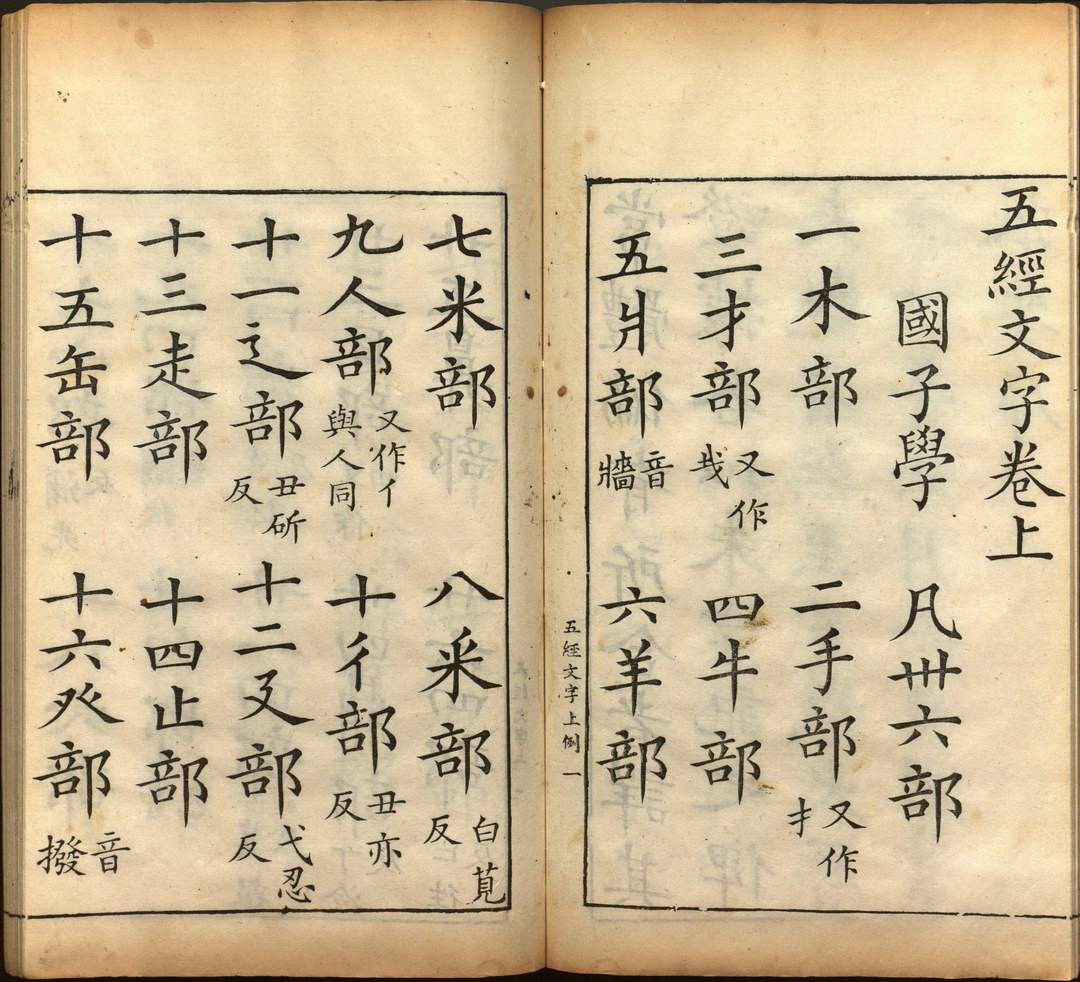 五經文字卷上
國子學 凡卅六部
一木部 二手部 又作扌
三才部 又作𢦏 四牛部
五爿部 音牆 六羊部
五經文字上例 一
七米部 八釆部 白莧反
九人部 又作亻與人同 十彳部 丑亦反
十一辶部 丑斫反 十二廴部 弋忍反
十三走部 十四止部
十五缶部 十六癶部 音撥